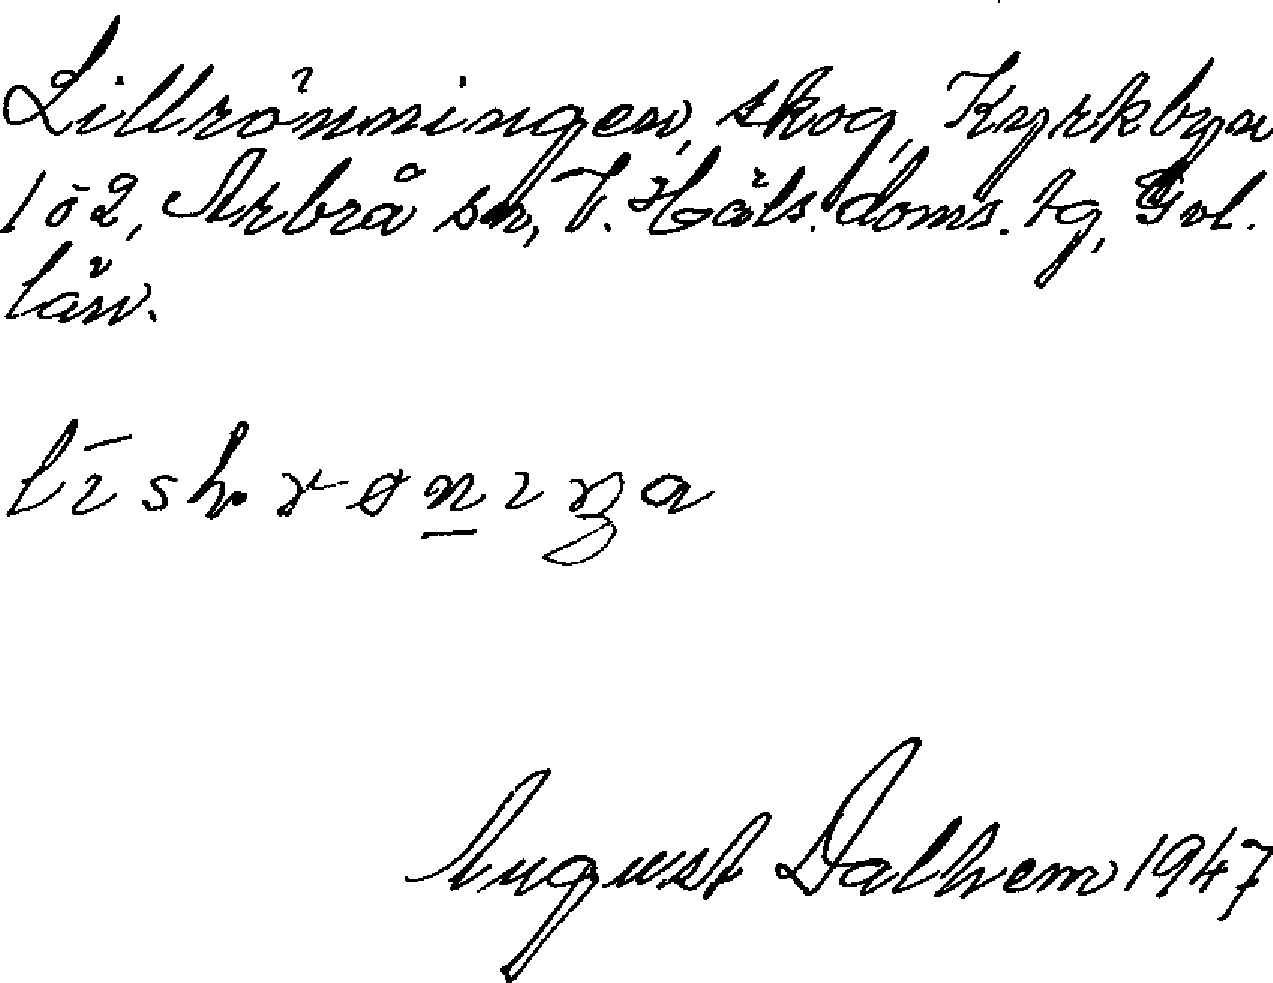 Lillrönningen, skog, Kyrkbyn
1 o 2, Arbrå sn, V. Häls. doms. tg, Gvl.
län.
August Dalhem 1947